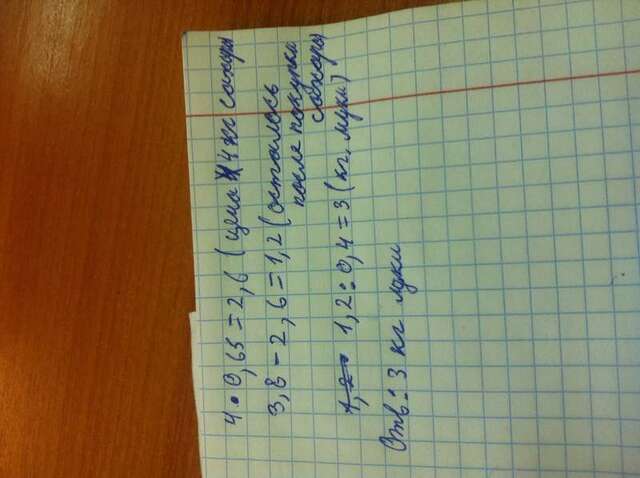 4 • 0,65 = 2,6 ( цена 4 кг сахара
3,8 - 2,6 = 1,2 ( осталось
после покупки
сахара
1,2 1,2 : 0,4 = 3 ( кг, муки )
Отв: 3 кг муки